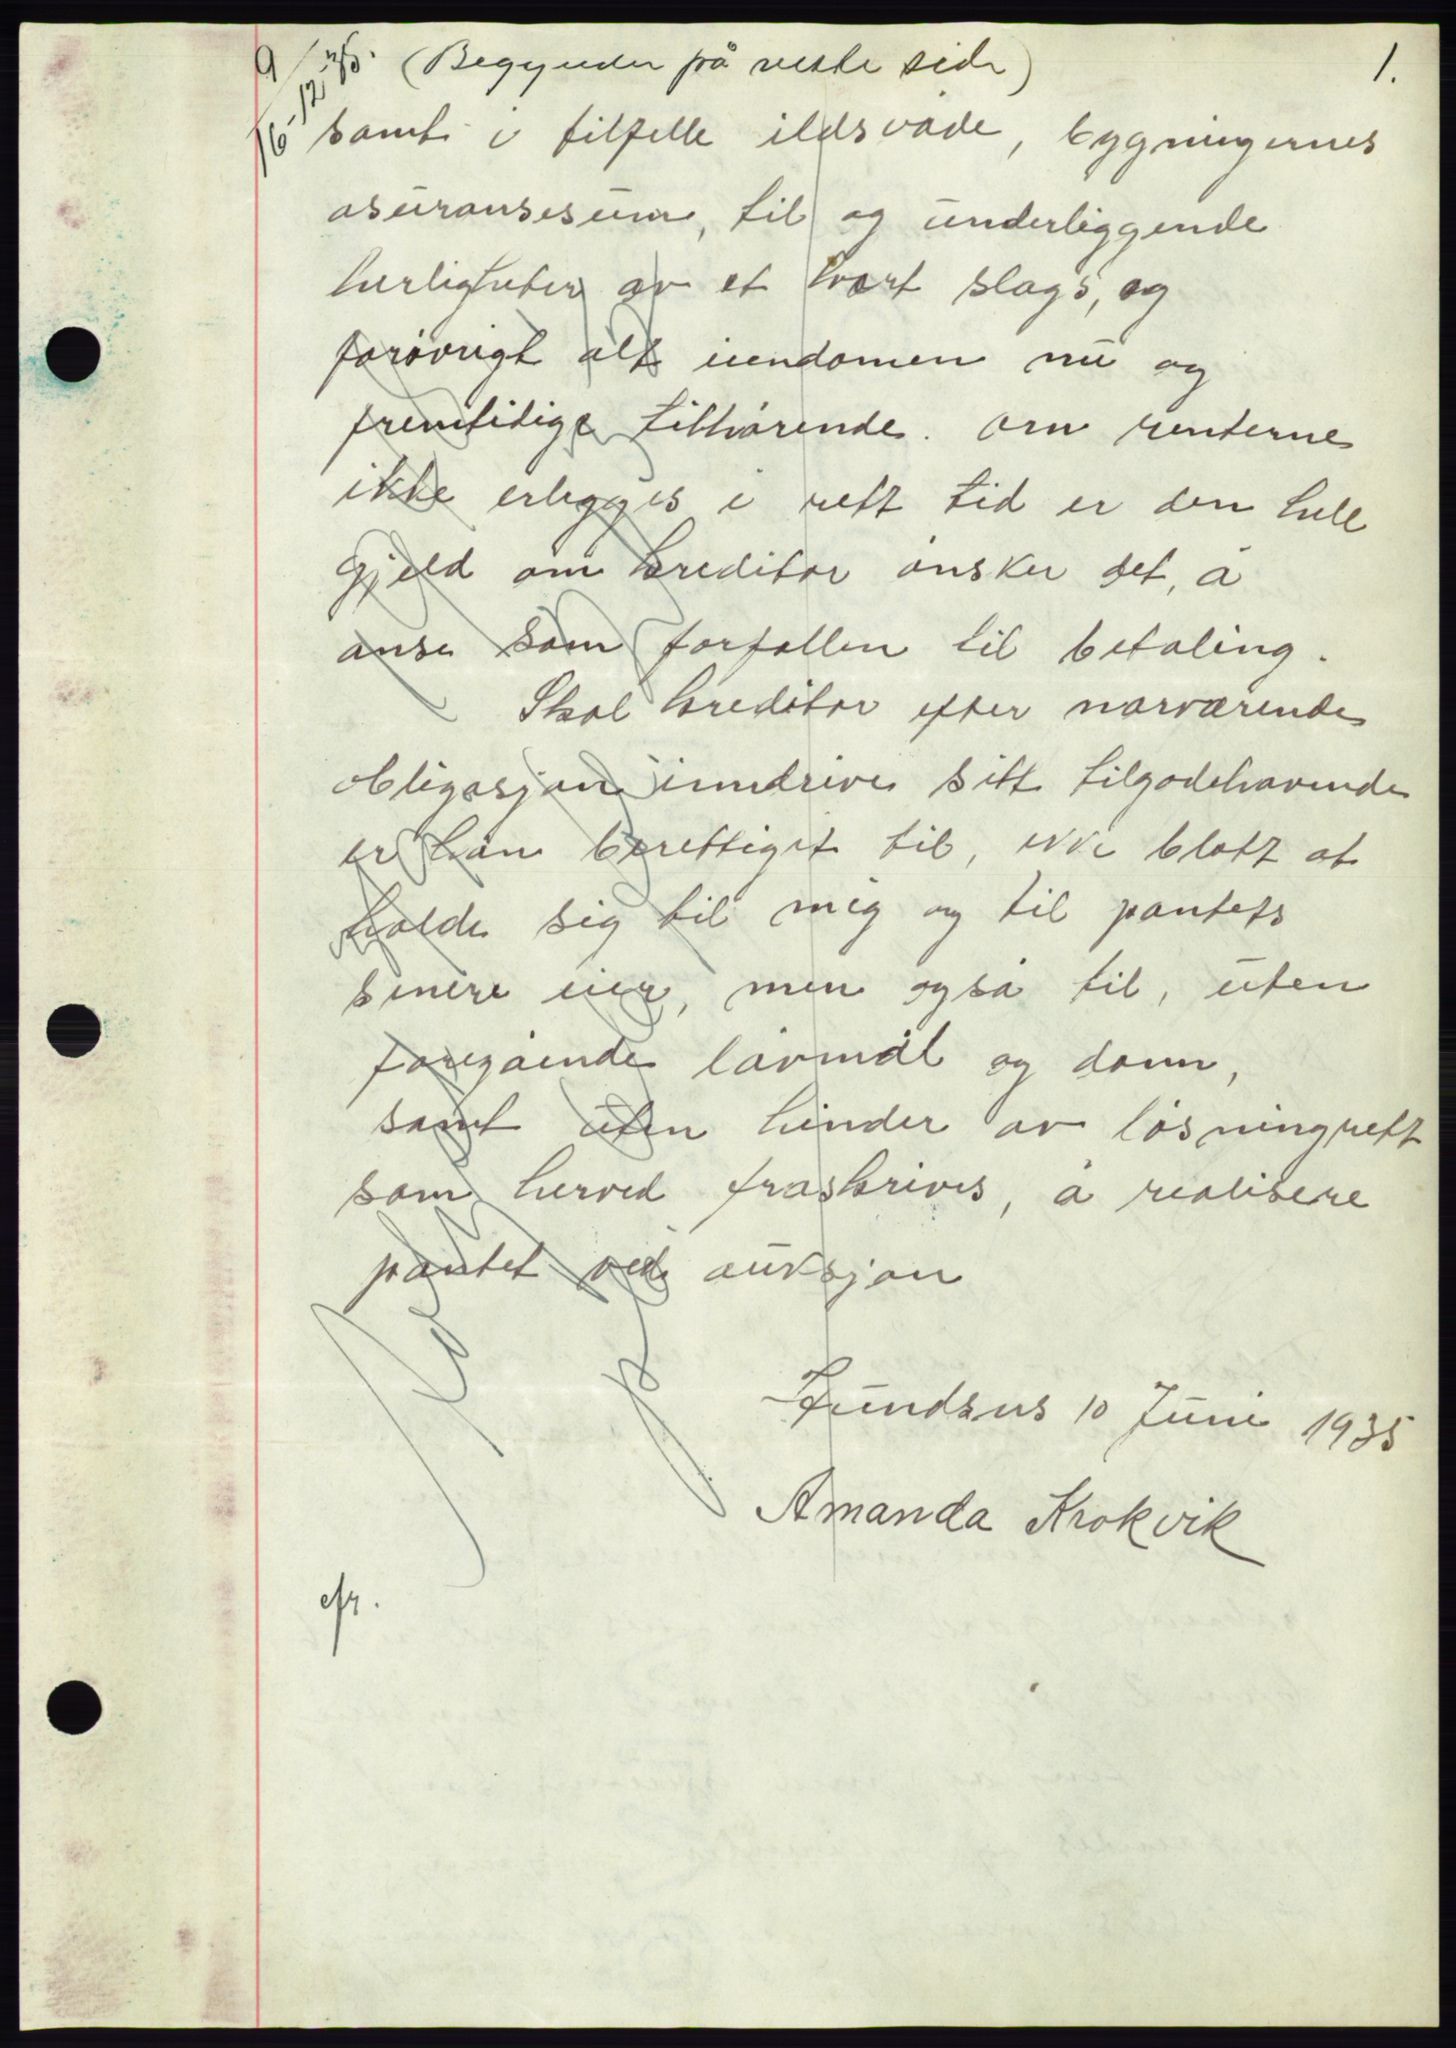 9 (Begynder på neste side) 1.
16-12-35.
samt i tilfelle ildsvåde, bygningernes
asuransesum, til og underliggende
herligheter av et hvert slags, og
forøvrigt alt eiendomen nu og
fremtidige tilhørende. om renterne
ikke erlegges i rett tid er den hele
gjeld om kreditor ønsker det, å
anse som forfallen til betaling.
Skal kreditor efter nærværende
obligasjon inndrive sitt tilgodehavende
er han berettiget til, ikke blott at
holde sig til mig og til pantets
senere eier, men også til, uten
foregående lovmål og dom,
samt uten hinder av løsningrett
som herved fraskrives, å realisere
pantet ved auksjon
10 Juni 1935
Amanda Krokvik
efr.